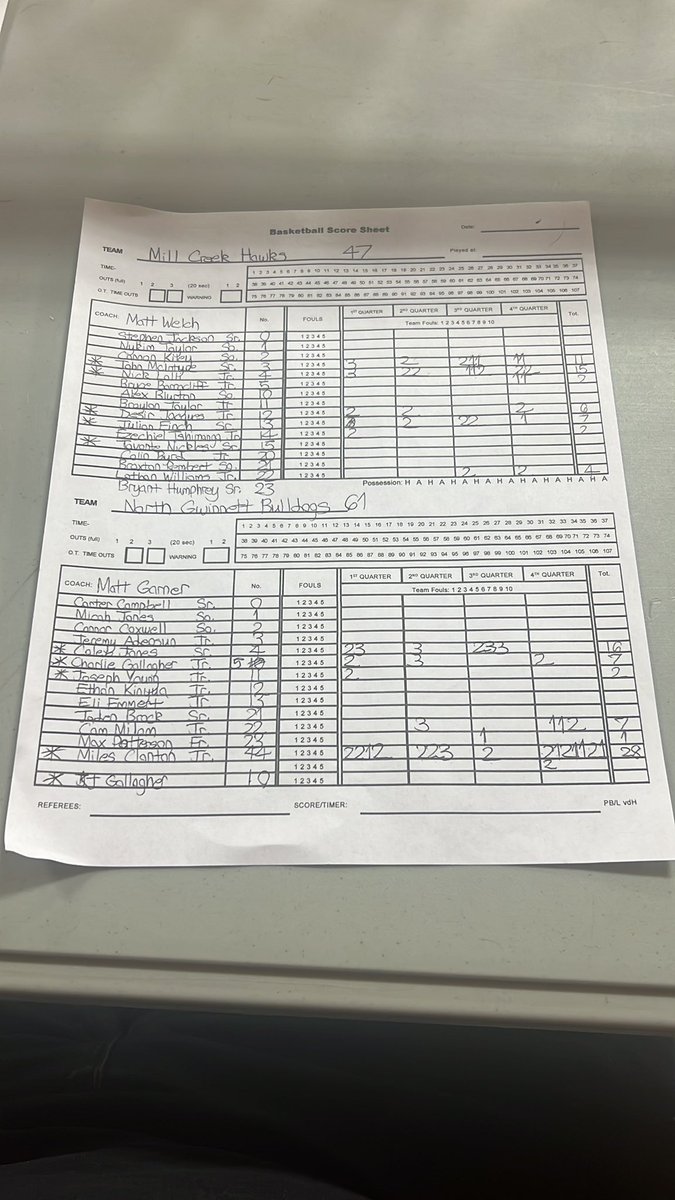 Basketball Score Sheet Date:
TEAM Mill Creek Hawks 47 Played at:
TIME- 1 2 3 4 5 6 7 8 9 10 11 12 13 14 15 16 17 18 19 20 21 22 23 24 25 26 27 28 29 30 31 32 33 34 35 36 37
OUTS (full) 1 2 3 (20 sec) 1 2 38 39 40 41 42 43 44 45 46 47 48 49 50 51 52 53 54 55 56 57 58 59 60 61 62 63 64 65 66 67 68 69 70 71 72 73 74
O.T. TIME OUTS WARNING 75 76 77 78 79 80 81 82 83 84 85 86 87 88 89 90 91 92 93 94 95 96 97 98 99 100 101 102 103 104 105 106 107
COACH: Matt Welch No. FOULS 1ST QUARTER 2ND QUARTER 3RD QUARTER 4TH QUARTER Tot.
Team Fouls: 1 2 3 4 5 6 7 8 9 10
Stephen Jackson Sr. 0 1 2 3 4 5
Taylor So. 1 1 2 3 4 5
Kiley So. 2 1 2 3 4 5
* John McIntyde Sr. 3 1 2 3 4 5 3 2 211 11 11
* Nick Jr. 4 1 2 3 4 5 3 22 112 22 15
Bryce Jr. 5 1 2 3 4 5 11 2
Alex Blurton So. 10 1 2 3 4 5
Braylon Taylor Jr. 11 1 2 3 4 5
* Jacques Jr. 12 1 2 3 4 5 2 2 2 6
* Julian Finch Sr. 13 1 2 3 4 5 2 22 1 7
Ezechiel Jr. 14 1 2 3 4 5 2 2
* Sr. 15 1 2 3 4 5
Colin Byrd Jr. 20 1 2 3 4 5
Braxton So. 21 1 2 3 4 5
Williams Jr. 22 1 2 3 4 5 2 2 4
Bryant Humphrey Sr. 23 Possession: H A H A H A H A H A H A H A H A H A H A H A H A
TEAM North Gwinnett Bulldogs 61
TIME- 1 2 3 4 5 6 7 8 9 10 11 12 13 14 15 16 17 18 19 20 21 22 23 24 25 26 27 28 29 30 31 32 33 34 35 36 37
OUTS (full) 1 2 3 (20 sec) 1 2 38 39 40 41 42 43 44 45 46 47 48 49 50 51 52 53 54 55 56 57 58 59 60 61 62 63 64 65 66 67 68 69 70 71 72 73 74
O.T. TIME OUTS WARNING 75 76 77 78 79 80 81 82 83 84 85 86 87 88 89 90 91 92 93 94 95 96 97 98 99 100 101 102 103 104 105 106 107
COACH: Matt Garner No. FOULS 1ST QUARTER 2ND QUARTER 3RD QUARTER 4TH QUARTER Tot.
Team Fouls: 1 2 3 4 5 6 7 8 9 10
Carter Campbell Sr. 0 1 2 3 4 5
Micah Jones So. 1 1 2 3 4 5
Connor Coxwell So. 2 1 2 3 4 5
Jeremy Jr. 3 1 2 3 4 5
* Caleb Jones Sr. 4 1 2 3 4 5 23 3 233 16
* Charlie Gallagher Jr. 5 1 2 3 4 5 2 3 2 7
* Joseph Young Jr. 11 1 2 3 4 5 2 2
Ethan Jr. 12 1 2 3 4 5
Eli Emmert Jr. 13 1 2 3 4 5
Brock Sr. 21 1 2 3 4 5
Cam Milam Jr. 22 1 2 3 4 5 3 112 7
Max Patterson Fr. 23 1 2 3 4 5 1 1
* Miles Clanton Jr. 44 1 2 3 4 5 2212 223 2 2121121 28
1 2 3 4 5 2
* Gallagher 10 1 2 3 4 5
REFEREES: SCORE/TIMER: PB/L vdH